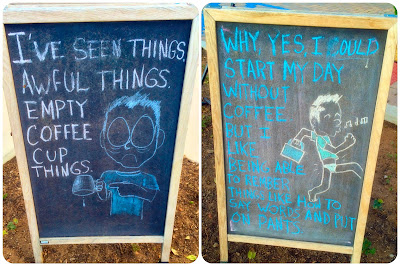 I'VE SEEN THINGS,
AWFUL THINGS.
EMPTY
COFFEE
CUP
THINGS.
WHY YES, I COULD
START MY DAY
WITHOUT
COFFEE
BUT I
LIKE
BEING ABLE
TO REMEMBER
THINGS LIKE HOW TO
SAY WORDS AND PUT
ON PANTS.